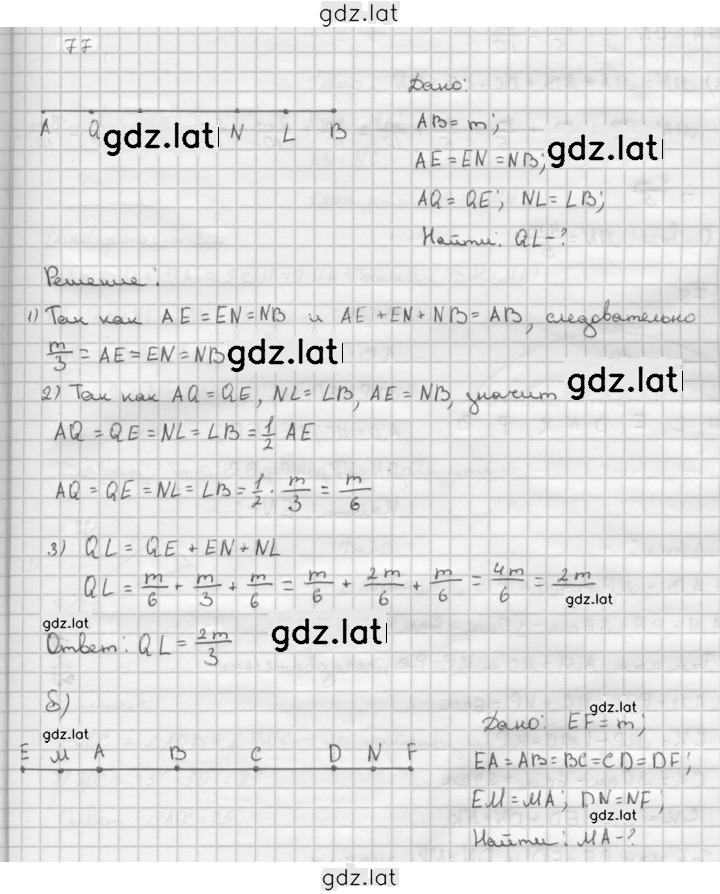 gdz.lat
77
A Q N L B
gdz.lat
Дано:
AB = m;
AE = EN = NB;
gdz.lat
AQ = QE; NL = LB;
Найти: QL - ?
Решение:
1) Так как AE = EN = NB и AE + EN + NB = AB, следовательно
m/3 = AE = EN = NB
gdz.lat
2) Так как AQ = QE, NL = LB, AE = NB, значит
gdz.lat
AQ = QE = NL = LB = 1/2 AE
AQ = QE = NL = LB = 1/2 · m/3 = m/6
3) QL = QE + EN + NL
QL = m/6 + m/3 + m/6 = m/6 + 2m/6 + m/6 = 4m/6 = 2m
gdz.lat
gdz.lat
Ответ: QL = 2m/3
gdz.lat
б)
gdz.lat
E M A B C D N F
gdz.lat
Дано: EF = m;
EA = AB = BC = CD = DF;
EM = MA; DN = NF;
gdz.lat
Найти: MA - ?
gdz.lat